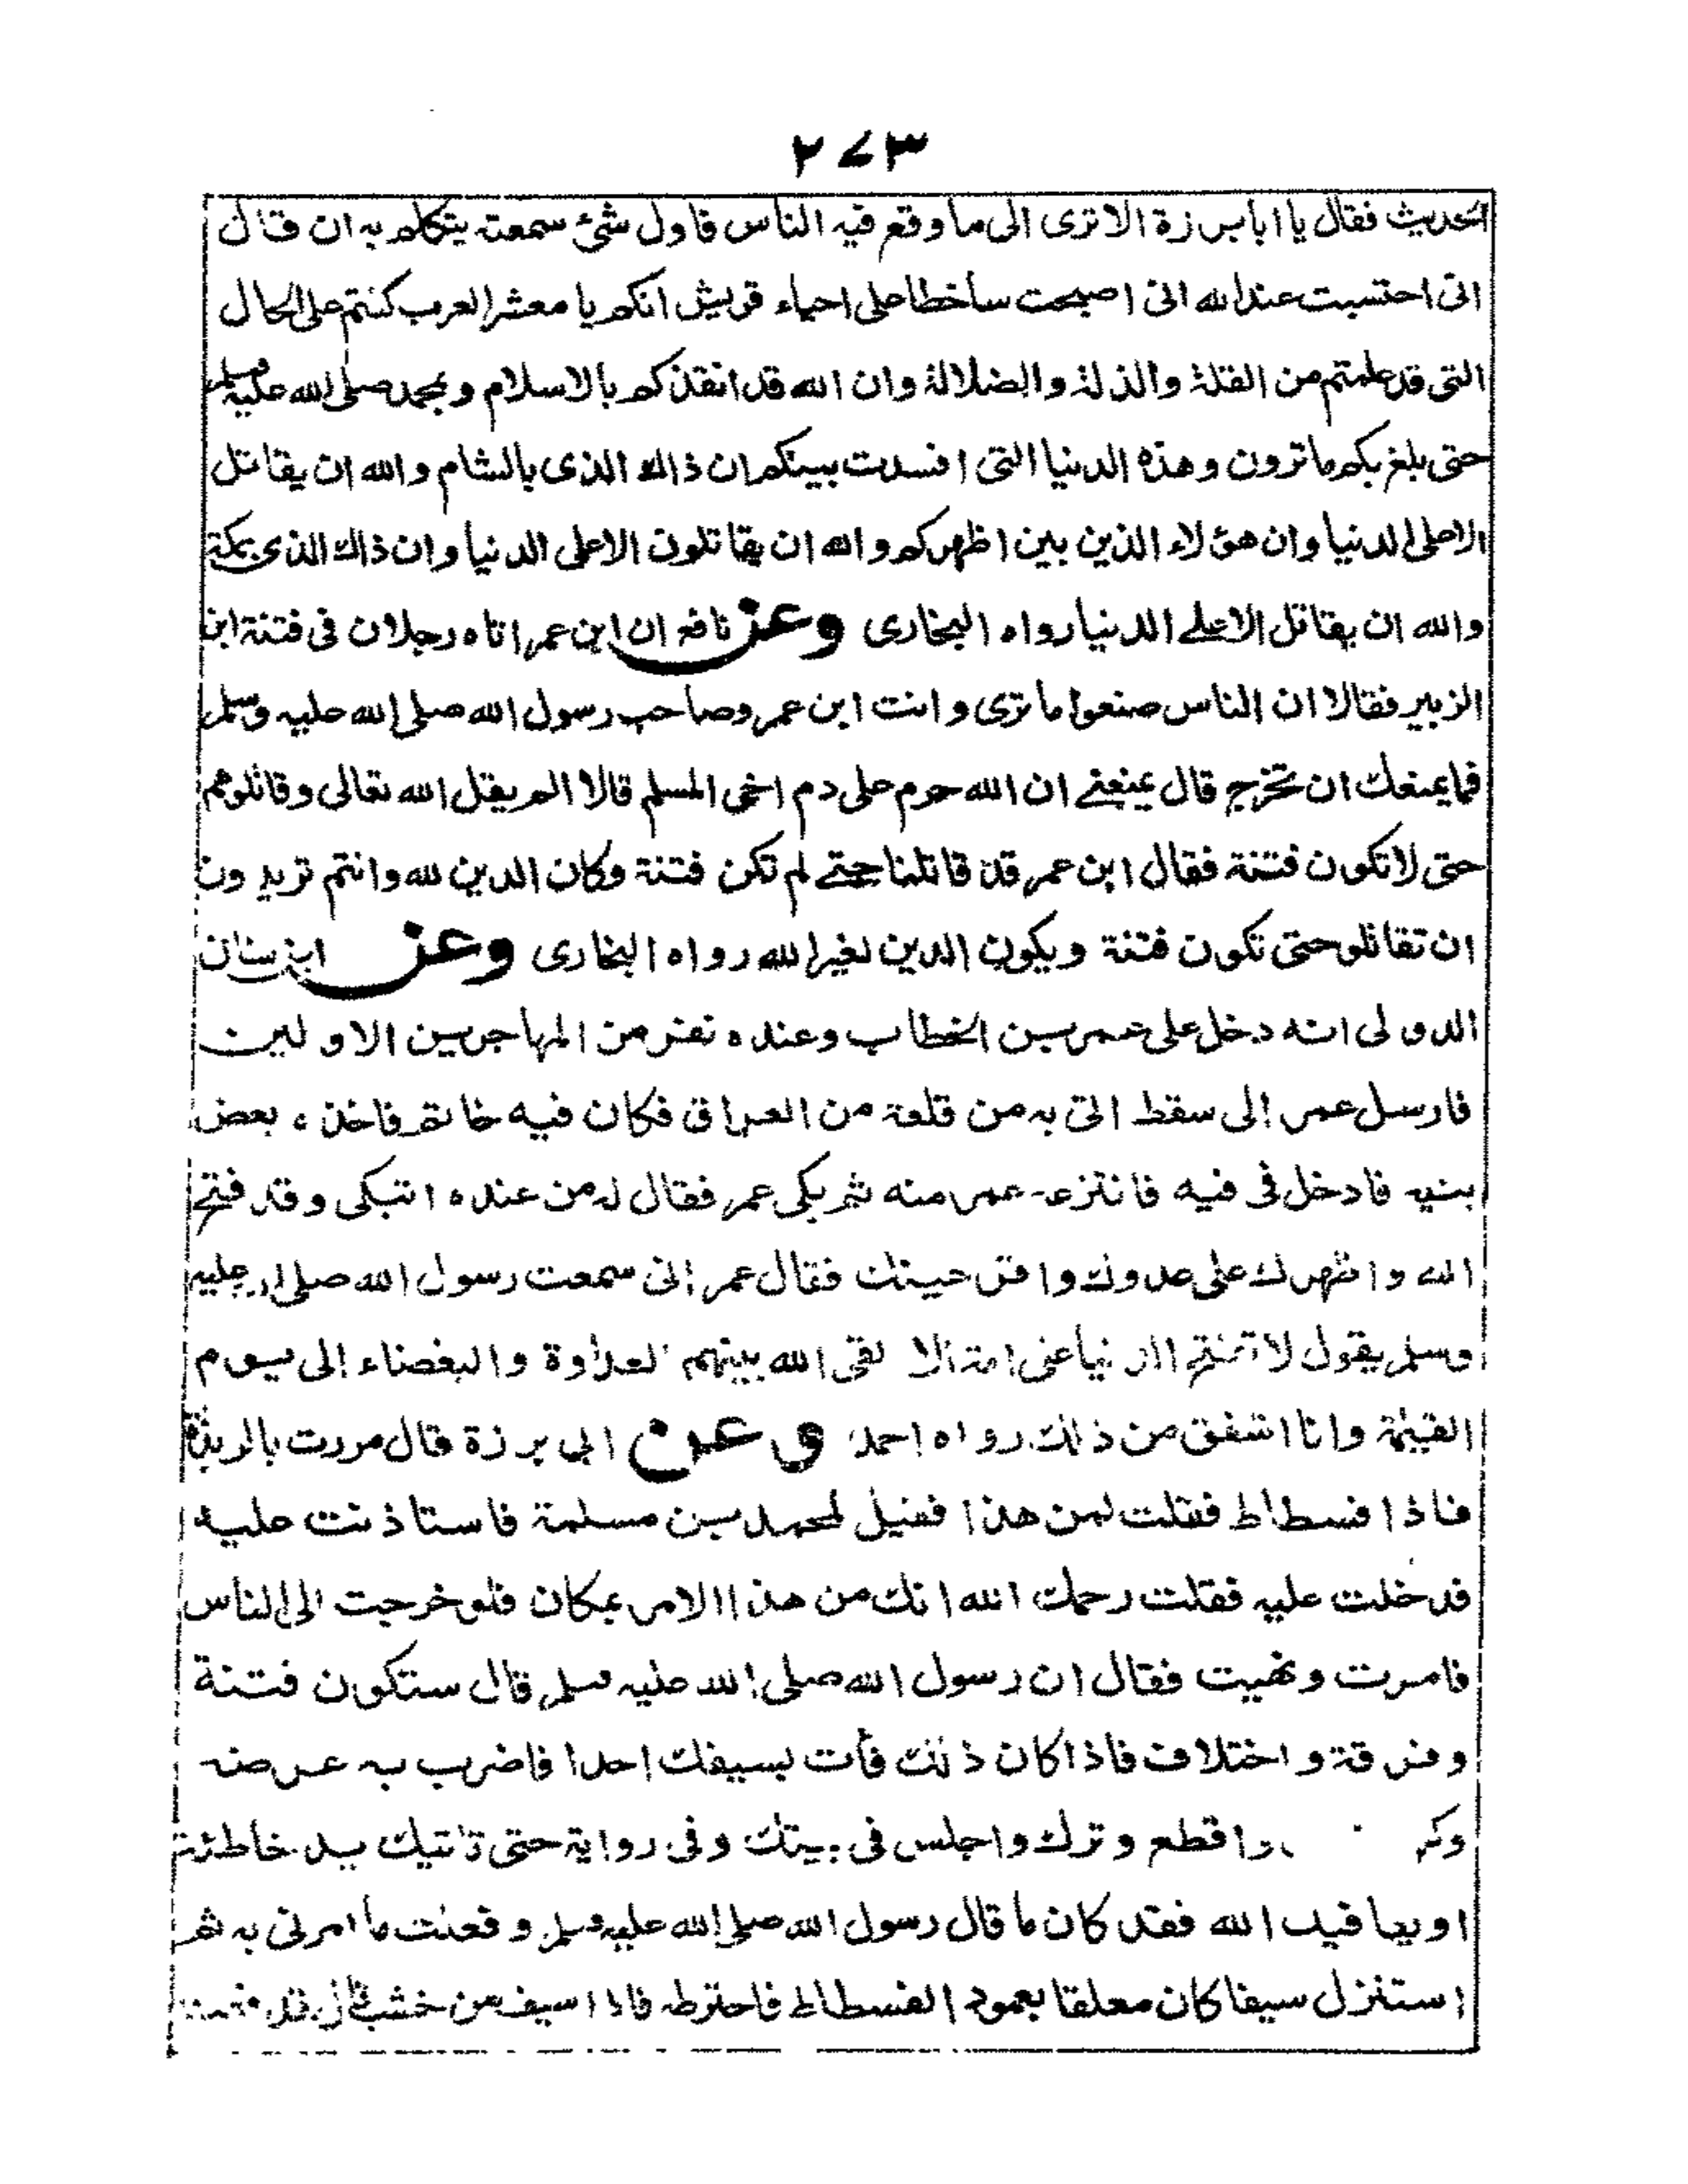 ٢٧٣
الحديث فقال يا ابا برزة الا ترى الى ما وقع فيه الناس فاول شئ سمعته يتكلم به ان قال
انى احتسبت عند الله انى اصبحت ساخطا على احياء قريش انكم يا معشر العرب كنتم على الحال
التى قد علمتم من القلة والذلة والضلالة وان الله قد انقذكم بالاسلام وبمحمد صلى الله عليه وسلم
حتى بلغ بكم ما ترون وهذه الدنيا التى افسدت بينكم ان ذاك الذى بالشام والله ان يقاتل
الا على الدنيا وان هؤلاء الذين بين اظهركم والله ان يقاتلون الا على الدنيا وان ذاك الذى بمكة
والله ان يقاتل الا على الدنيا رواه البخارى وعن نافع ان ابن عمر اتاه رجلان فى فتنة ابن
الزبير فقالا ان الناس صنعوا ما ترى وانت ابن عمر وصاحب رسول الله صلى الله عليه وسلم
فما يمنعك ان تخرج قال يمنعنى ان الله حرم على دم اخى المسلم قالا الم يقل الله تعالى وقاتلوهم
حتى لا تكون فتنة فقال ابن عمر قد قاتلنا حتى لم تكن فتنة وكان الدين لله وانتم تريدون
ان تقاتلو حتى تكون فتنة ويكون الدين لغير الله رواه البخارى وعن ابن سنان
الدولى انه دخل على عمر بن الخطاب وعنده نفر من المهاجرين الاولين
فارسل عمر الى سفط اتى به من قلعة من العراق فكان فيه خاتم فاخذه بعض
بنيه فادخل فى فيه فانتزعه عمر منه ثم بكى عمر فقال له من عنده اتبكى وقد فتح
الله واظهرك على عدوك واقر عينك فقال عمر انى سمعت رسول الله صلى الله عليه
وسلم يقول لا تفتح الدنيا على امة الا القى الله بينهم العداوة والبغضاء الى يوم
القيمة وانا اشفق من ذلك رواه احمد وعن ابى برزة قال مررت بالربذة
فاذا فسطاط فقلت لمن هذا فقيل لمحمد بن مسلمة فاستاذنت عليه
فدخلت عليه فقلت رحمك الله انك من هذا الامر بمكان فلو خرجت الى الناس
فامرت ونهيت فقال ان رسول الله صلى الله عليه وسلم قال ستكون فتنة
وفرقة واختلاف فاذا كان ذلك فأت بسيفك احدا فاضرب به عرضه
واقطع وترك واجلس فى بيتك وفى رواية حتى تاتيك يد خاطئة
او يعافيك الله فقد كان ما قال رسول الله صلى الله عليه وسلم وفعلت ما امرنى به ثم
استنزل سيفا كان معلقا بعمود الفسطاط فاخترطه فاذا سيف من خشب